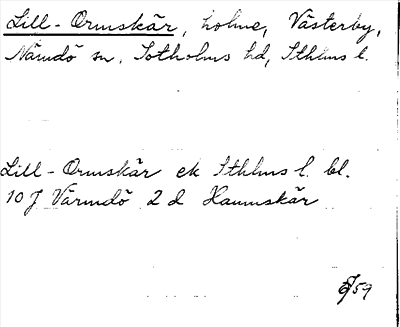 Lill-Ormskär, holme, Västerby,
Nämdö sn, Sotholms hd, Sthlms l.
Lill-Ormskär ek Sthlms l. bl.
10 J Värmdö 2 d Hamnskär
/59